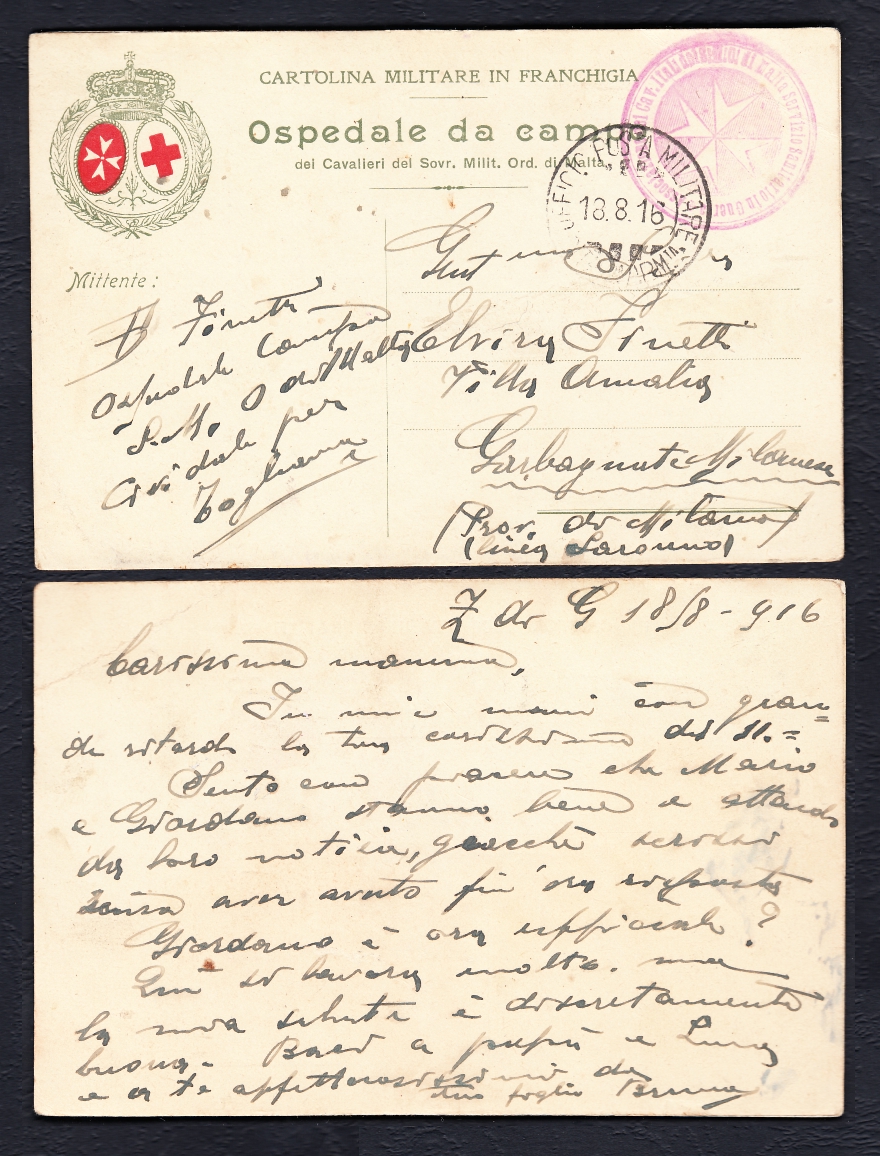 CARTOLINA MILITARE IN FRANCHIGIA
Ospedale da campo
dei Cavalieri del Sovr. Milit. Ord. di Malta
UFFICIO POSTA MILITARE
18.8.16
ARMATA
Mittente:
Finetti
Ospedale Campo
S. M. O di Malta
Cividale per
Togliano
Elvira Finetti
Villa Amalia
Garbagnate Milanese
(Prov. di Milano)
(linea Saronno)
Z di G 18/8-916
Carissima mamma,
In mie mani con gran=
de ritardo la tua carissima del 11.=
Sento con piacere che Mario
e Giordano stanno bene e attendo
da loro notizie, giacchè scrissi
senza aver avuto fin'ora risposta
Giordano è ora ufficiale?
Qui si lavora molto. ma
la mia salute è discretamente
buona. Baci a papà e Luisa
e a te affettuosissimi da
tuo figlio Bruno